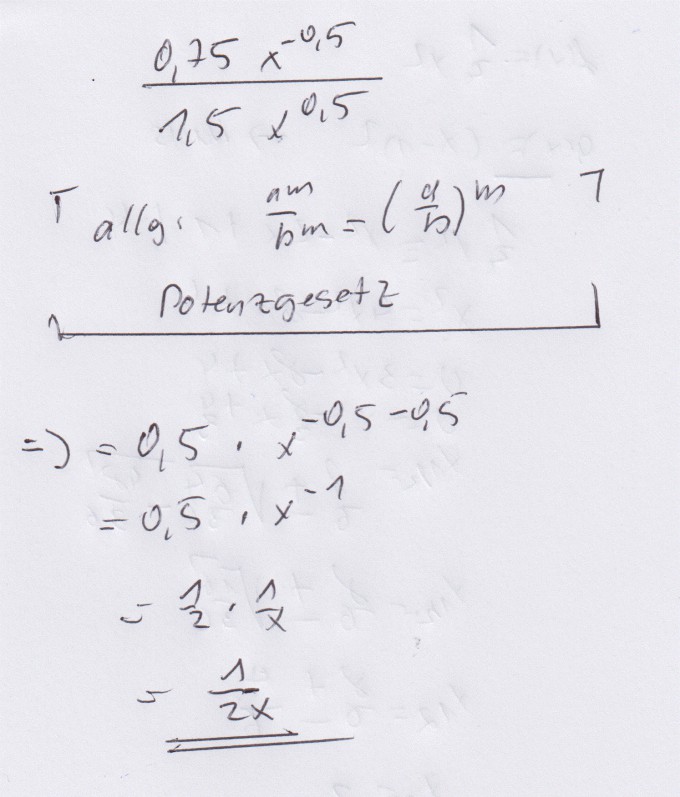 0,75 x^-0,5
1,5 x^0,5
allg. a^m/b^m = (a/b)^m
Potenzgesetz
=> = 0,5 · x^-0,5-0,5
= 0,5 · x^-1
= 1/2 · 1/x
= 1/2x